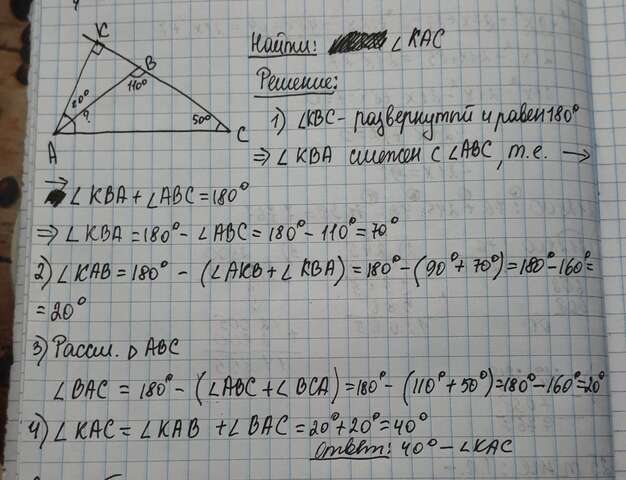 K
B
110°
80°
?
50°
A
C
Найти: ∠KAC
Решение:
1) ∠KBC - развернутый и равен 180°
⇒ ∠KBA смежен с ∠ABC, т.е. →
→ ∠KBA + ∠ABC = 180°
⇒ ∠KBA = 180° - ∠ABC = 180° - 110° = 70°
2) ∠KAB = 180° - (∠AKB + ∠KBA) = 180° - (90° + 70°) = 180° - 160° =
= 20°
3) Рассм. △ABC
∠BAC = 180° - (∠ABC + ∠BCA) = 180° - (110° + 50°) = 180° - 160° = 20°
4) ∠KAC = ∠KAB + ∠BAC = 20° + 20° = 40°
Ответ: 40° - ∠KAC